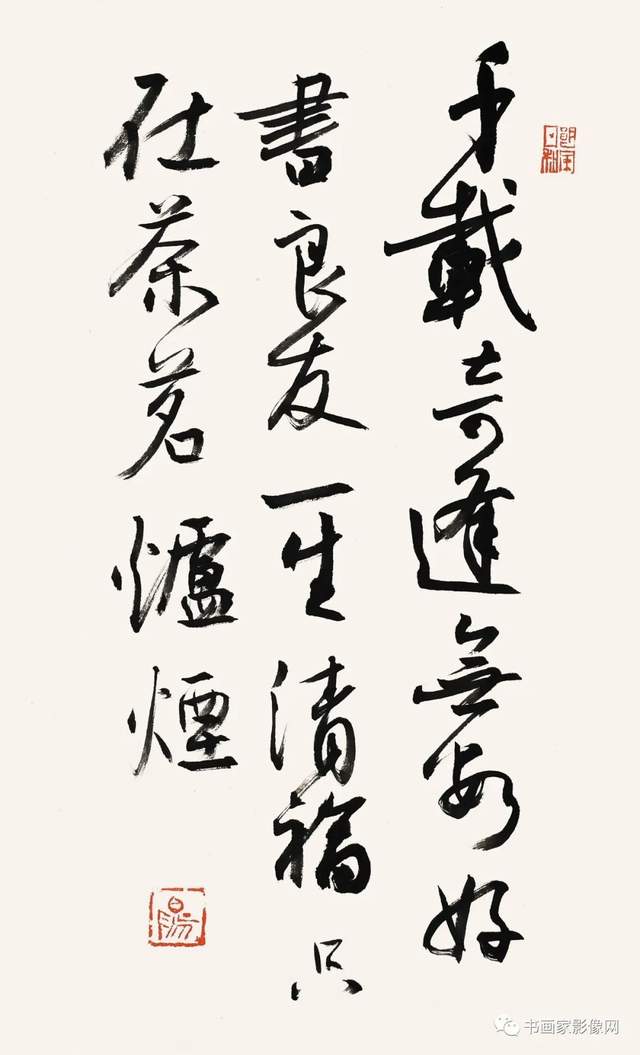 千載奇逢無如好
書良友一生清福只
在茶茗爐煙
书画家影像网